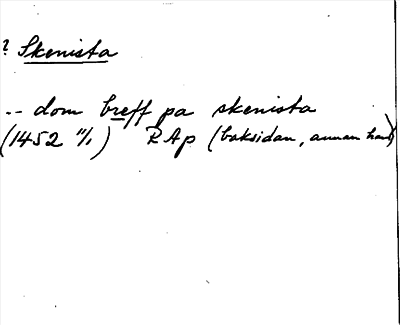 ? Skenista
-- dom breff pa skenista
(1452 11/1) RAp (baksidan, annan hand)